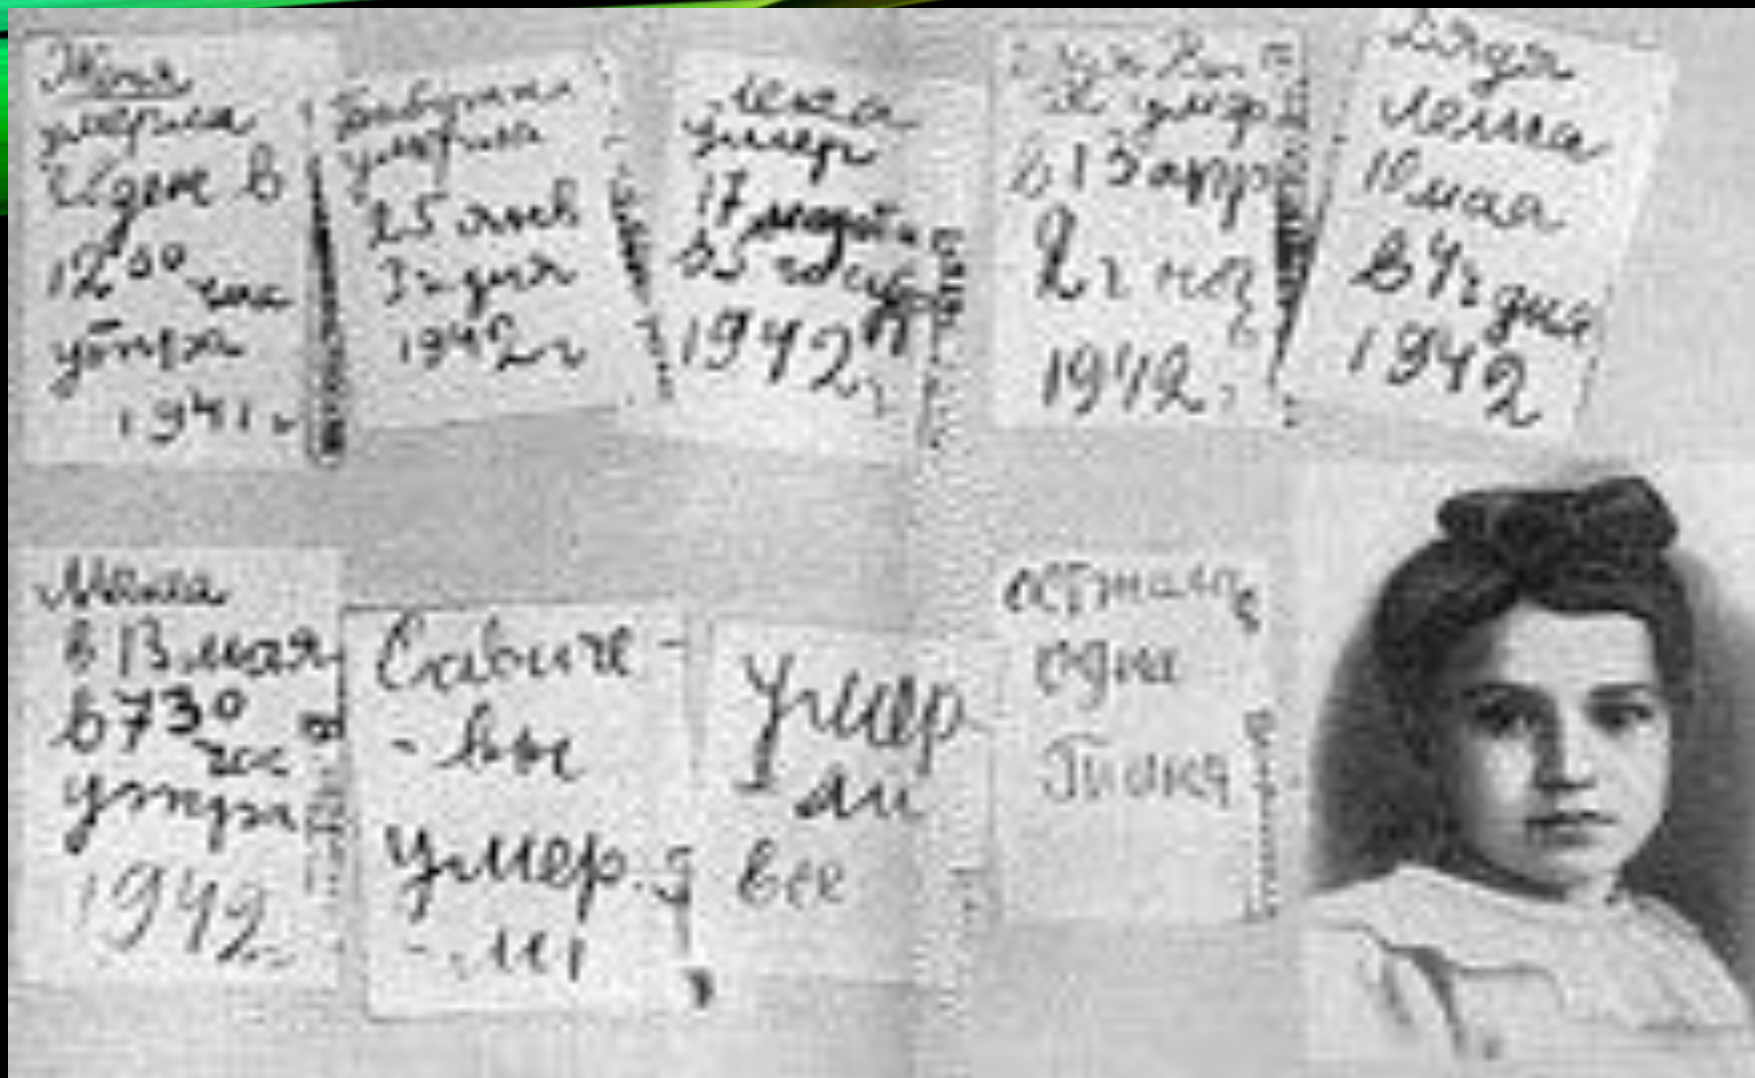 Женя
умерла
28 дек в
12 00 час
утра
1941 г
Бабушка
умерла
25 янв
3 ч дня
1942 г
Лека
умер
17 марта
в 5 часут
1942 г
Дядя Ва
умер
в 13 апр
2 ч ноч
1942 г
Дядя
Леша
10 мая
в 4 ч дня
1942
Мама
в 13 мая
в 7 30
час
утра
1942
Савиче
- вы
умер
- ли
Умер
ли
все
осталас
одна
Таня